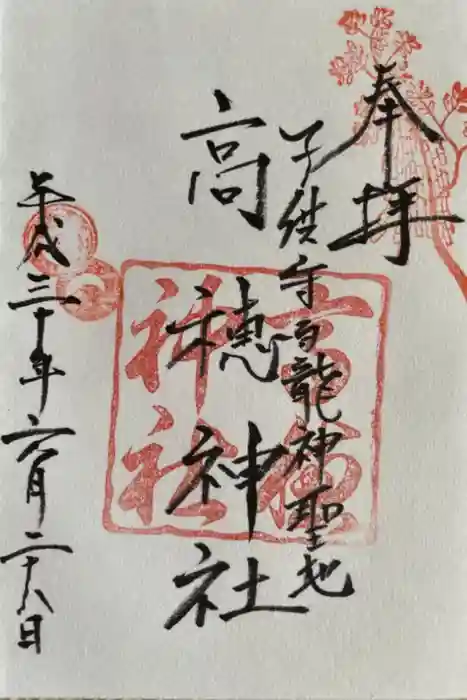 奉拝
子供守白龍神聖地
高穂神社
平成三十年六月二十八日
高穂
神社